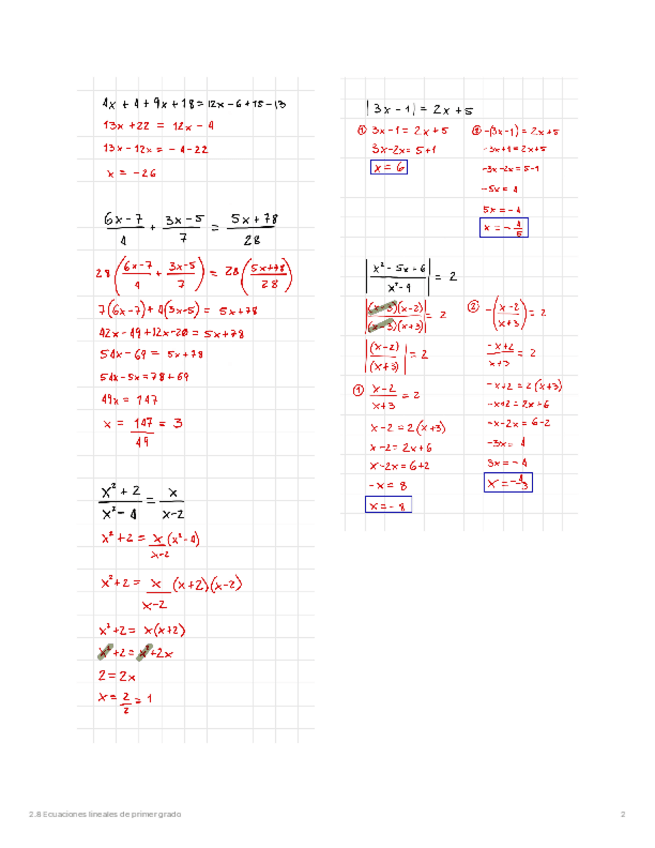 4x + 4 + 9x + 18 = 12x - 6 + 15 - 13
13x + 22 = 12x - 4
13x - 12x = - 4 - 22
x = - 26
6x - 7 / 4 + 3x - 5 / 7 = 5x + 78 / 28
28 (6x - 7 / 4 + 3x - 5 / 7) = 28 (5x + 78 / 28)
7(6x - 7) + 4(3x - 5) = 5x + 78
42x - 49 + 12x - 20 = 5x + 78
54x - 69 = 5x + 78
54x - 5x = 78 + 69
49x = 147
x = 147 / 49 = 3
x² + 2 / x² - 4 = x / x - 2
x² + 2 = x / x - 2 (x² - 4)
x² + 2 = x / x - 2 (x + 2)(x - 2)
x² + 2 = x(x + 2)
x² + 2 = x² + 2x
2 = 2x
x = 2 / 2 = 1
|3x - 1| = 2x + 5
① 3x - 1 = 2x + 5
3x - 2x = 5 + 1
x = 6
② -(3x - 1) = 2x + 5
-3x + 1 = 2x + 5
-3x - 2x = 5 - 1
-5x = 4
5x = - 4
x = - 4 / 5
|x² - 5x + 6 / x² - 9| = 2
|(x - 3)(x - 2) / (x - 3)(x + 3)| = 2
|(x - 2) / (x + 3)| = 2
① x - 2 / x + 3 = 2
x - 2 = 2(x + 3)
x - 2 = 2x + 6
x - 2x = 6 + 2
- x = 8
x = - 8
② -(x - 2 / x + 3) = 2
- x + 2 / x + 3 = 2
- x + 2 = 2(x + 3)
- x + 2 = 2x + 6
- x - 2x = 6 - 2
- 3x = 4
3x = - 4
x = - 4 / 3
2.8 Ecuaciones lineales de primer grado
2